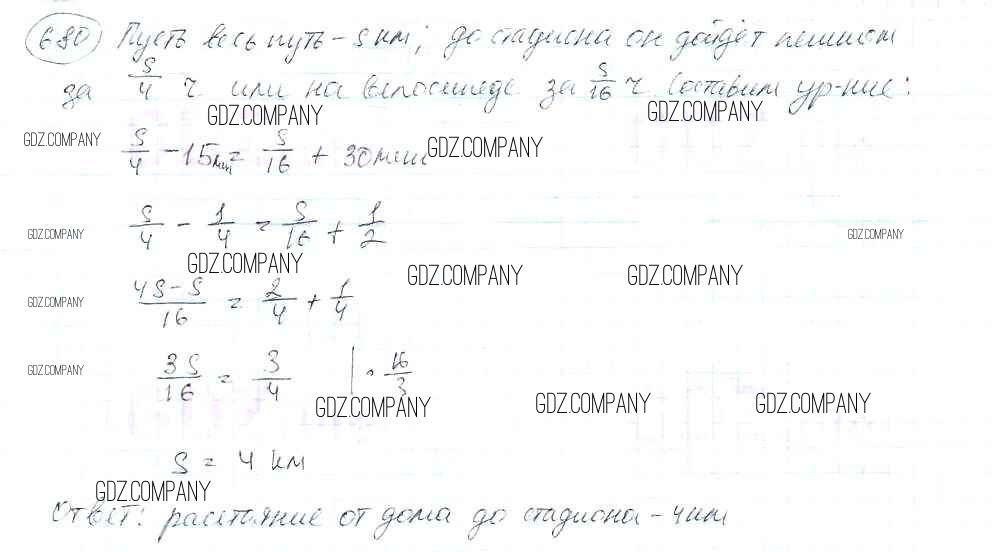 680) Пусть весь путь – s км; до стадиона он дойдёт пешком
за s/4 ч или на велосипеде за s/16 ч. Составим ур-ние:
GDZ.COMPANY GDZ.COMPANY
GDZ.COMPANY s/4 – 15мин = s/16 + 30мин GDZ.COMPANY
GDZ.COMPANY s/4 – 1/4 = s/16 + 1/2 GDZ.COMPANY
GDZ.COMPANY GDZ.COMPANY GDZ.COMPANY
GDZ.COMPANY 4s–s/16 = 2/4 + 1/4
GDZ.COMPANY 3s/16 = 3/4 | · 16/3
GDZ.COMPANY GDZ.COMPANY GDZ.COMPANY
s = 4 км
GDZ.COMPANY
Ответ: расстояние от дома до стадиона – 4км